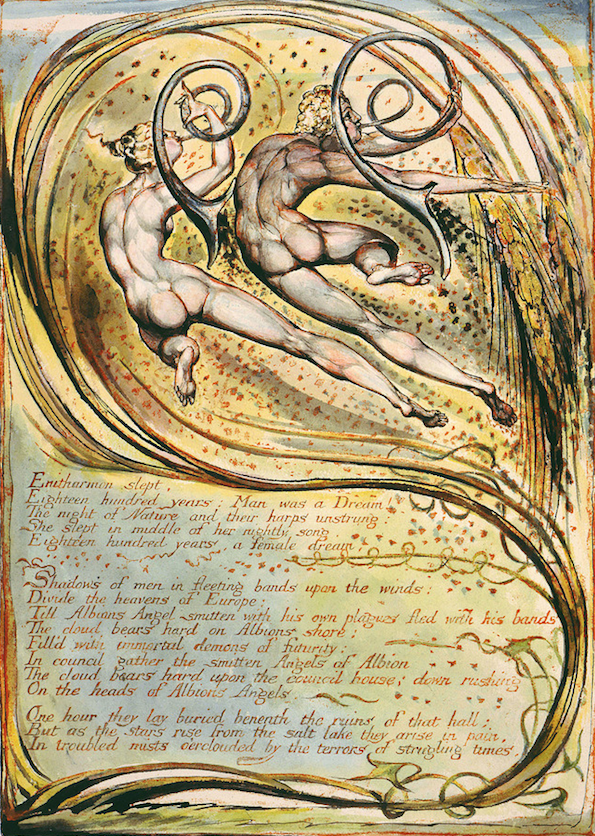 Enitharmon slept
Eighteen hundred years: Man was a Dream!
The night of Nature and their harps unstrung:
She slept in middle of her nightly song,
Eighteen hundred years, a female dream

Shadows of men in fleeting bands upon the winds:
Divide the heavens of Europe:
Till Albions Angel smitten with his own plagues fled with his bands
The cloud bears hard on Albions shore;
Fill'd with immortal demons of futurity:
In council gather the smitten Angels of Albion
The cloud bears hard upon the council house; down rushing
On the heads of Albions Angels.

One hour they lay buried beneath the ruins of that hall;
But as the stars rise from the salt lake they arise in pain,
In troubled mists oerclouded by the terrors of strugling times.